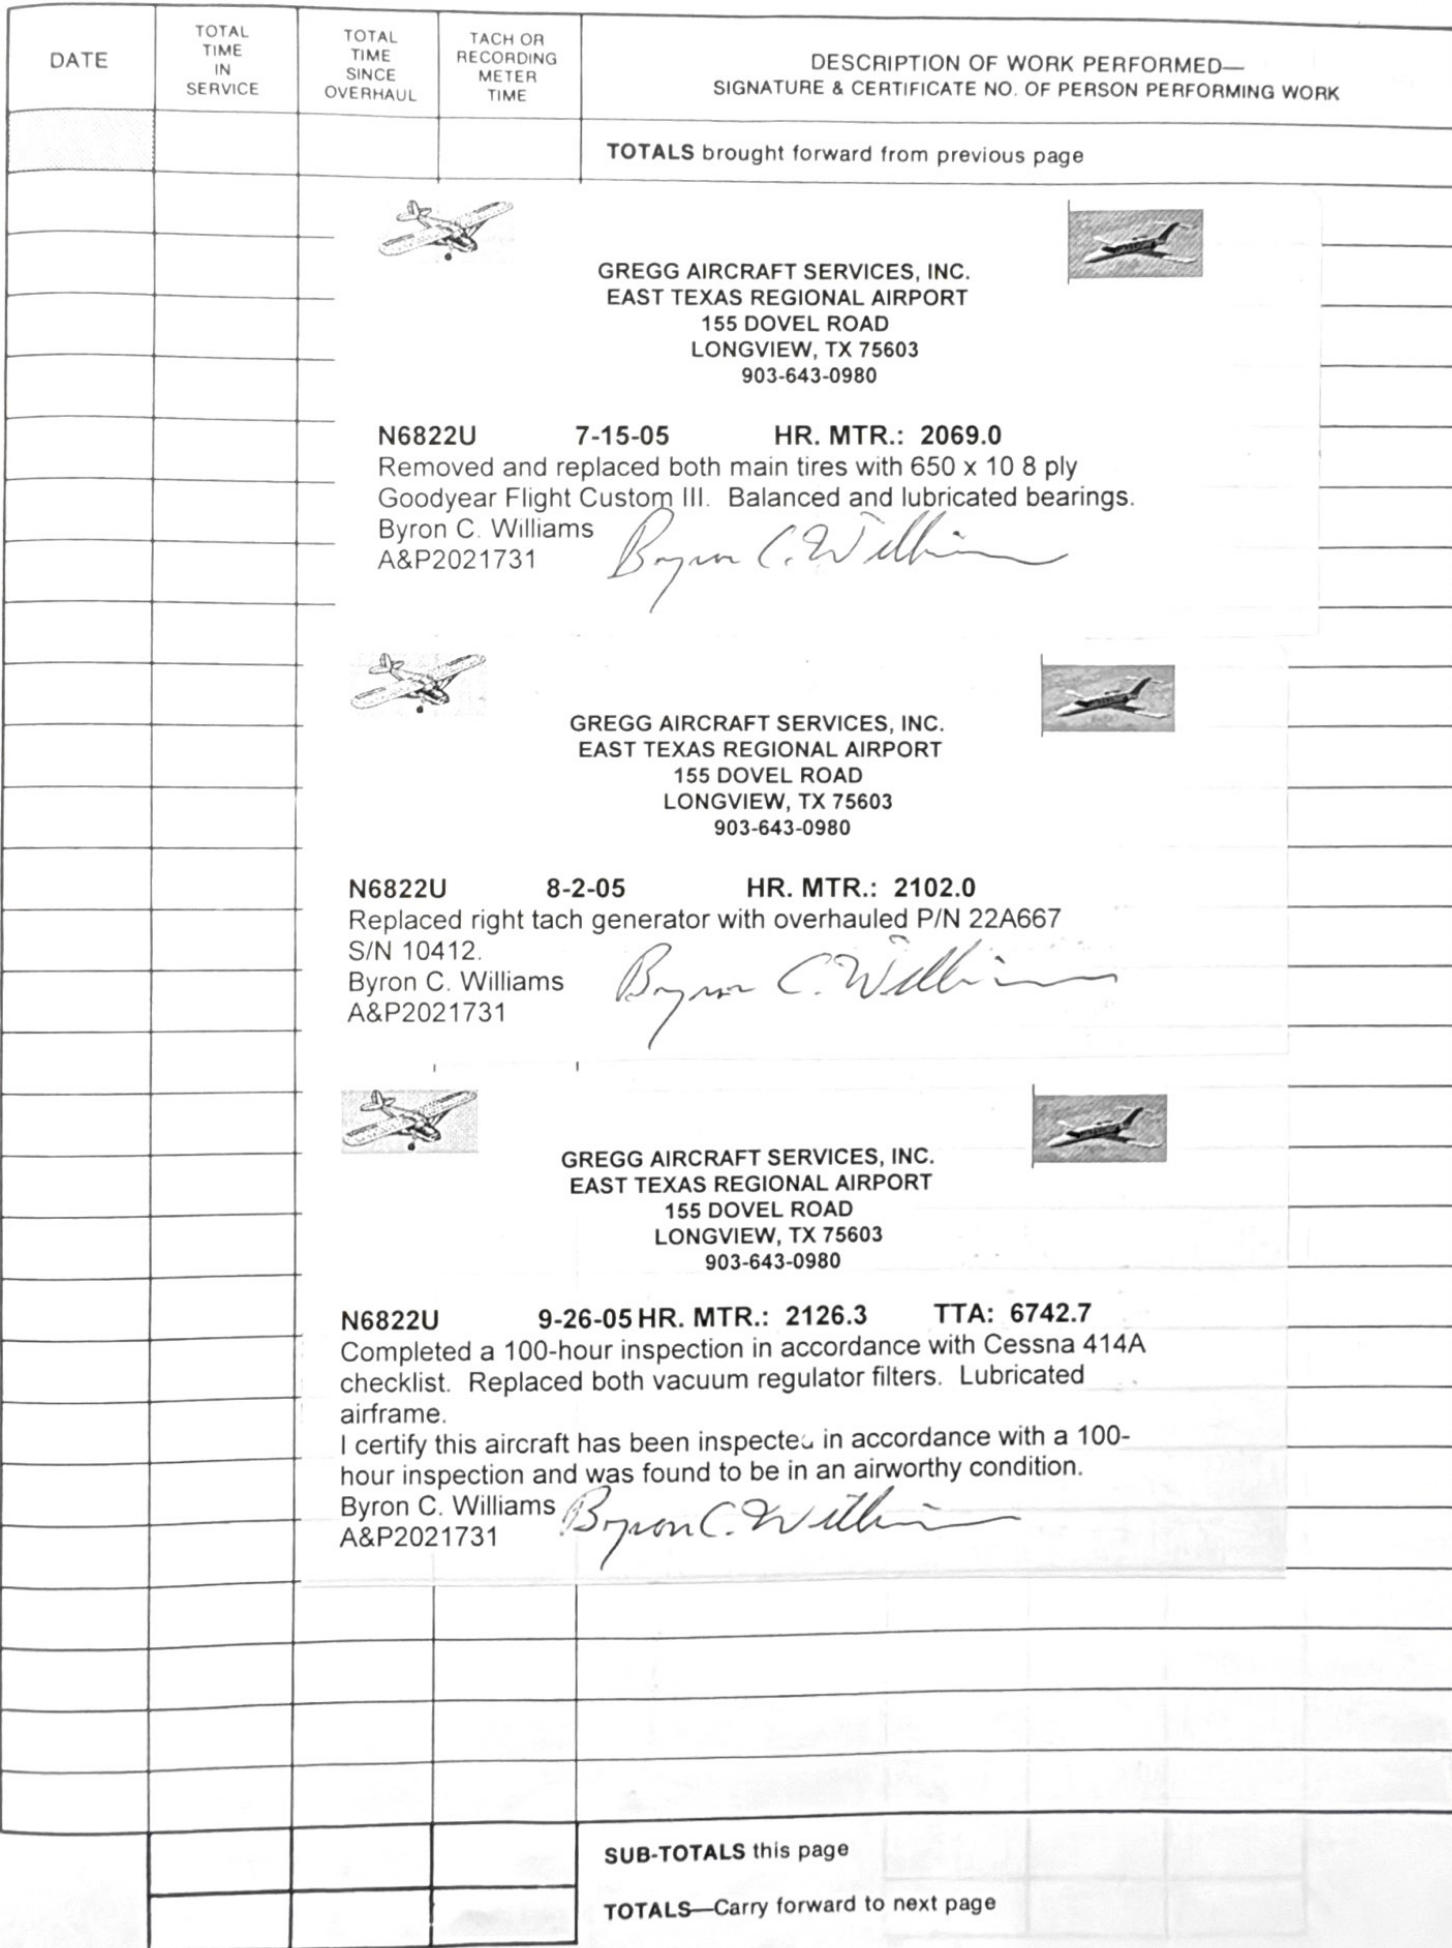 DATE
TOTAL
TIME
IN
SERVICE
TOTAL
TIME
SINCE
OVERHAUL
TACH OR
RECORDING
METER
TIME
DESCRIPTION OF WORK PERFORMED—
SIGNATURE & CERTIFICATE NO. OF PERSON PERFORMING WORK
TOTALS brought forward from previous page
GREGG AIRCRAFT SERVICES, INC.
EAST TEXAS REGIONAL AIRPORT
155 DOVEL ROAD
LONGVIEW, TX 75603
903-643-0980
N6822U 7-15-05 HR. MTR.: 2069.0
Removed and replaced both main tires with 650 x 10 8 ply
Goodyear Flight Custom III. Balanced and lubricated bearings.
Byron C. Williams
Byron C. Williams
A&P2021731
GREGG AIRCRAFT SERVICES, INC.
EAST TEXAS REGIONAL AIRPORT
155 DOVEL ROAD
LONGVIEW, TX 75603
903-643-0980
N6822U 8-2-05 HR. MTR.: 2102.0
Replaced right tach generator with overhauled P/N 22A667
S/N 10412.
Byron C. Williams
Byron C. Williams
A&P2021731
GREGG AIRCRAFT SERVICES, INC.
EAST TEXAS REGIONAL AIRPORT
155 DOVEL ROAD
LONGVIEW, TX 75603
903-643-0980
N6822U 9-26-05 HR. MTR.: 2126.3 TTA: 6742.7
Completed a 100-hour inspection in accordance with Cessna 414A
checklist. Replaced both vacuum regulator filters. Lubricated
airframe.
I certify this aircraft has been inspected in accordance with a 100-
hour inspection and was found to be in an airworthy condition.
Byron C. Williams
Byron C. Williams
A&P2021731
SUB-TOTALS this page
TOTALS—Carry forward to next page